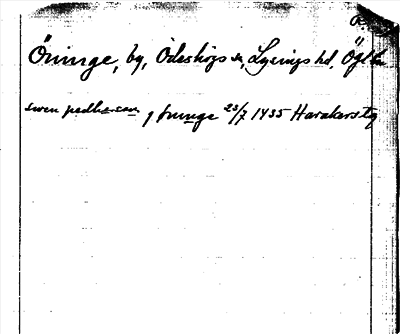 Öninge, by, Ödeshögs sn, Lysings hd, Ögl. län
swen pedhersen j frninge 23/7 1435 Harakers tg